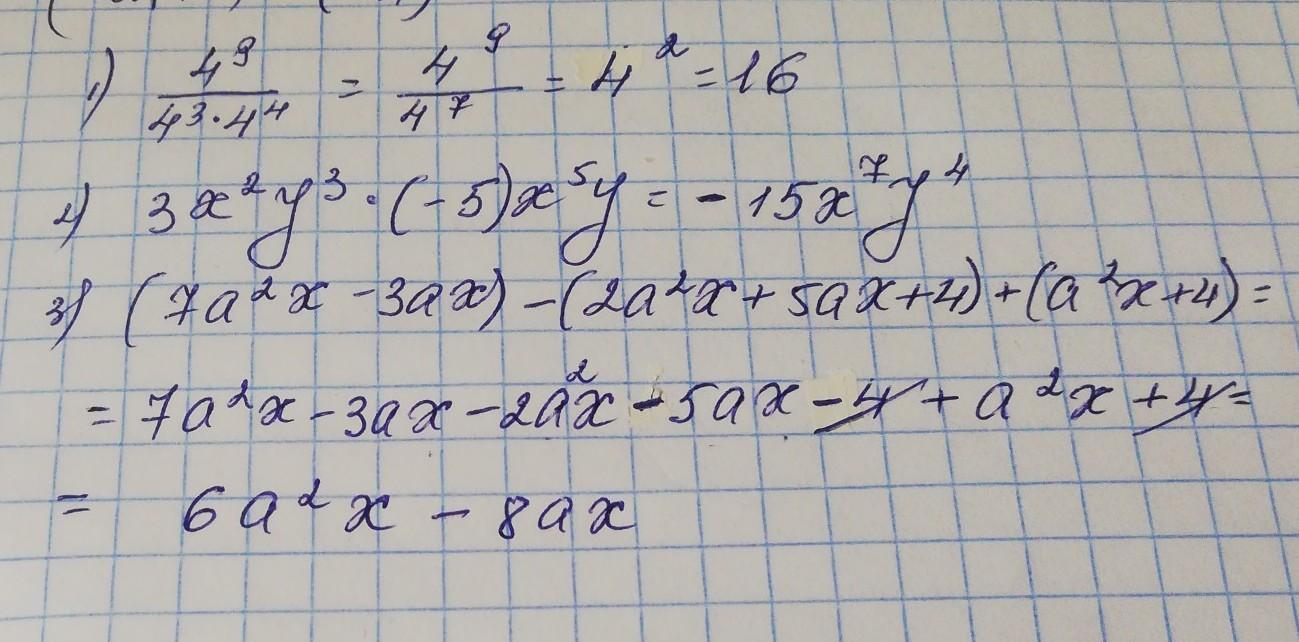 1) 4⁹/(4³·4⁴) = 4⁹/4⁷ = 4² = 16
2) 3x²y³·(-5)x⁵y = -15x⁷y⁴
3) (7a²x - 3ax) - (2a²x + 5ax + 4) + (a²x + 4) =
= 7a²x - 3ax - 2a²x - 5ax - 4 + a²x + 4 =
= 6a²x - 8ax